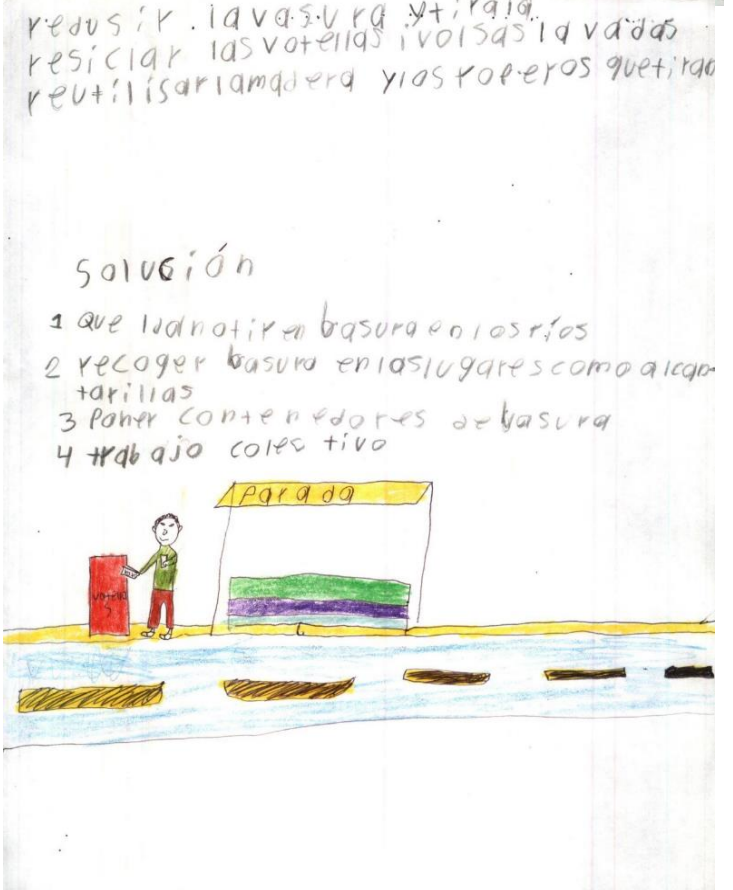 redusir. la vasura y tirala
resiclar las votellas i volsas la vadas
reutilisar la madera y los roperos que tiran
solución
1 que no tiren basura en los ríos
2 recoger basura en las lugares como alcan-
tarillas
3 Poner contenedores de basura
4 trabajo colectivo
Parada
votella